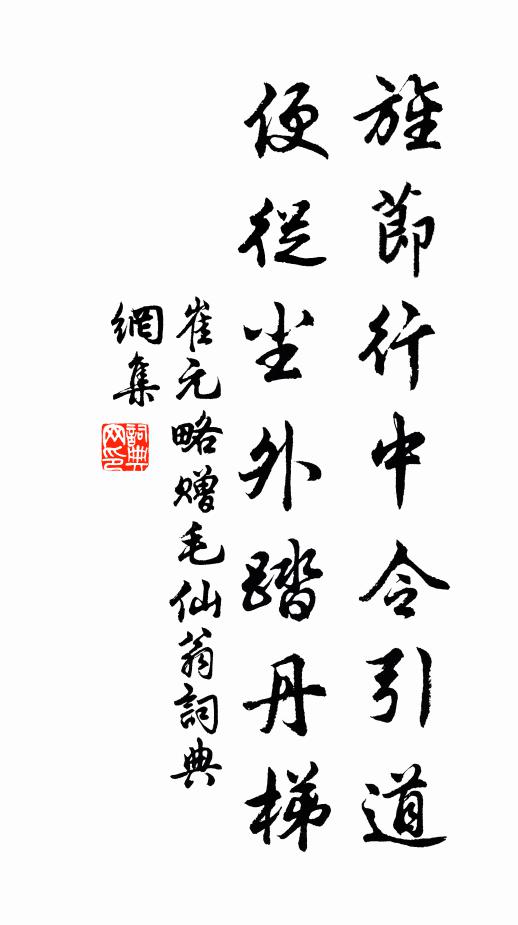 旌節行中令引道
便從坐外踏丹梯
崔元略贈毛仙翁詞典
網集